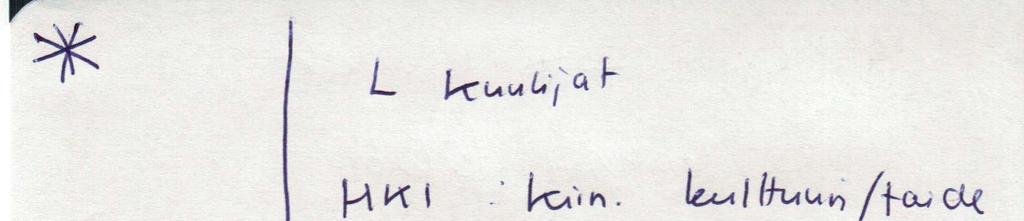 * L kuulijat
HKI : kiin. kulttuuri/taide